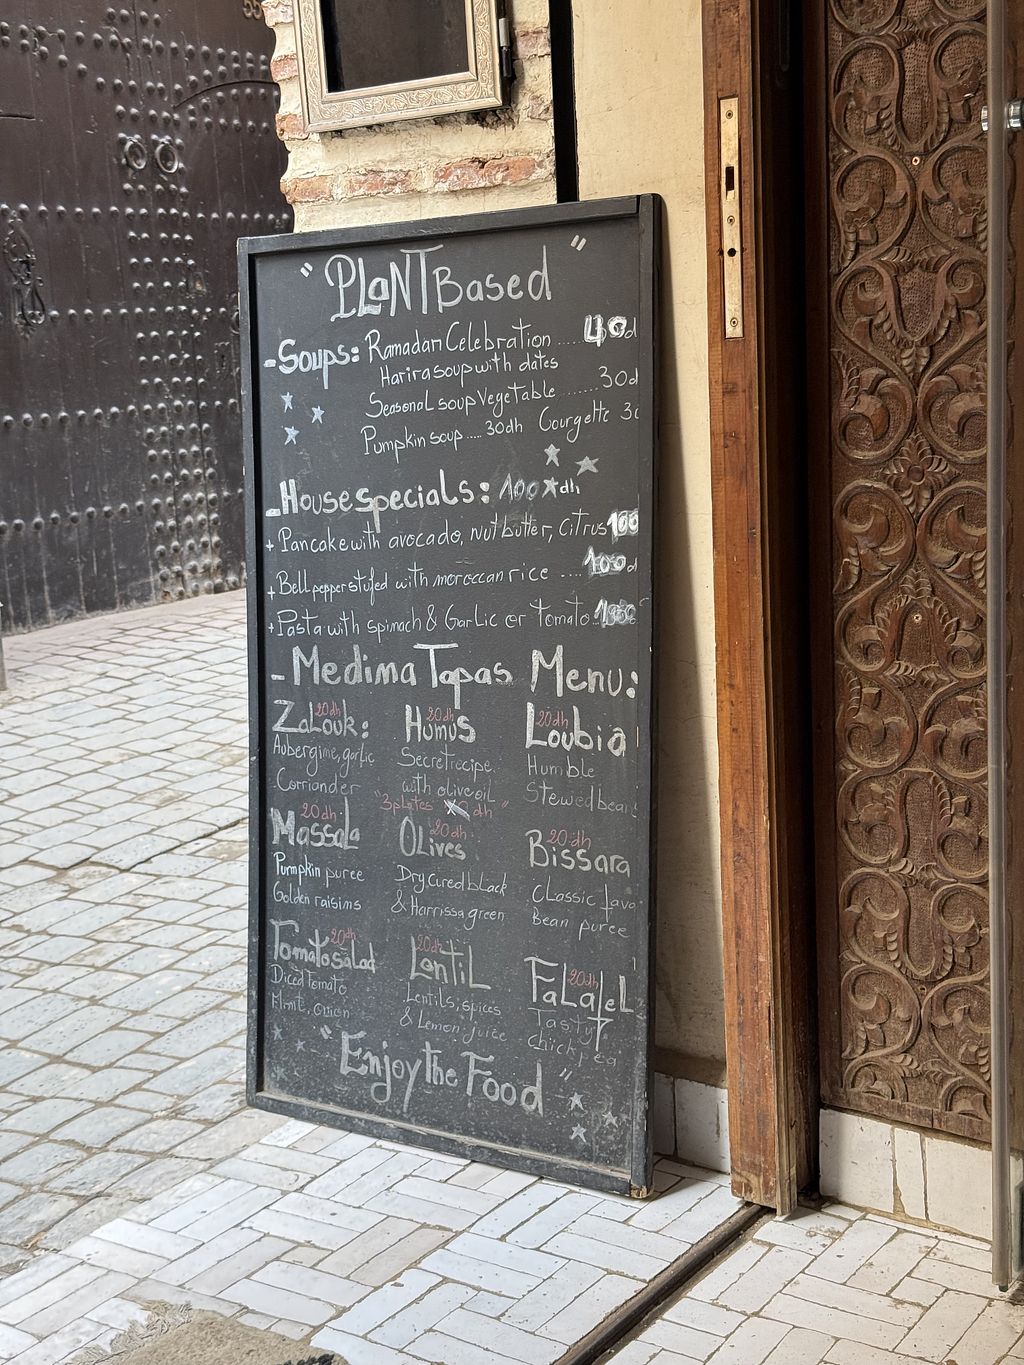 " PLaNT Based "
-Soups: Ramadan Celebration ..... 40d
Harira soup with dates
Seasonal soup Vegetable ...... 30d
Pumpkin soup .... 30dh Courgette 30
-House specials: 100 dh
+ Pancake with avocado, nut butter, citrus 100
+ Bell pepper stufed with moroccan rice .... 100d
+ Pasta with spinach & Garlic or Tomato. 100
- Medima Tapas Menu:
20dh 20dh 20dh
Zalouk: Humus Loubia
Aubergime, garlic Secret recipe Humble
Corriander with olive oil Stewed bean
"3 plates dh"
20dh 20dh 20dh
Massala Olives Bissara
Pumpkin puree Dry cured black Classic fava
Golden raisims & Harrissa green Bean puree
20dh 20dh 20dh
Tomato salad Lentil Falafel
Diced Tomato Lentils, spices Tasty
Mint, onion & Lemon juice chickpea
" Enjoy the Food "